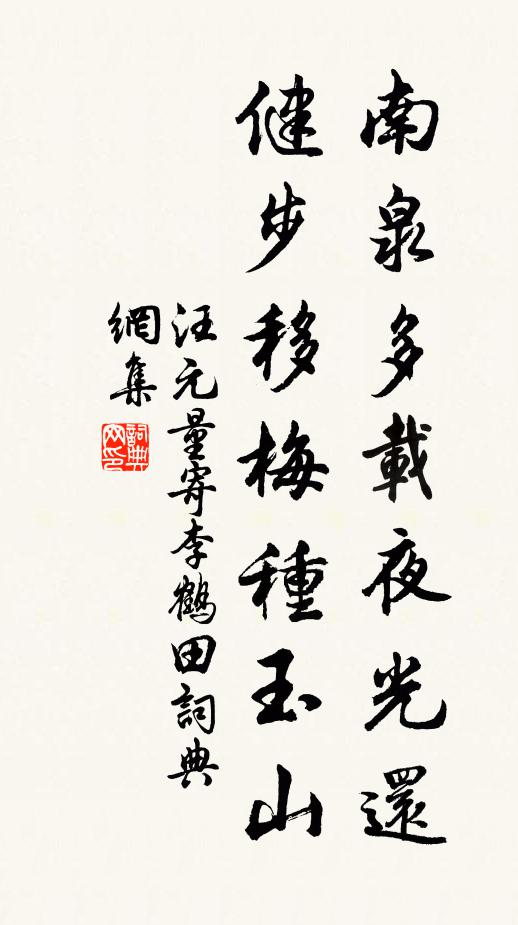 南泉多載夜光還
健步移梅種玉山
汪元量寄李鶴田詞典
網集
詞典
网印